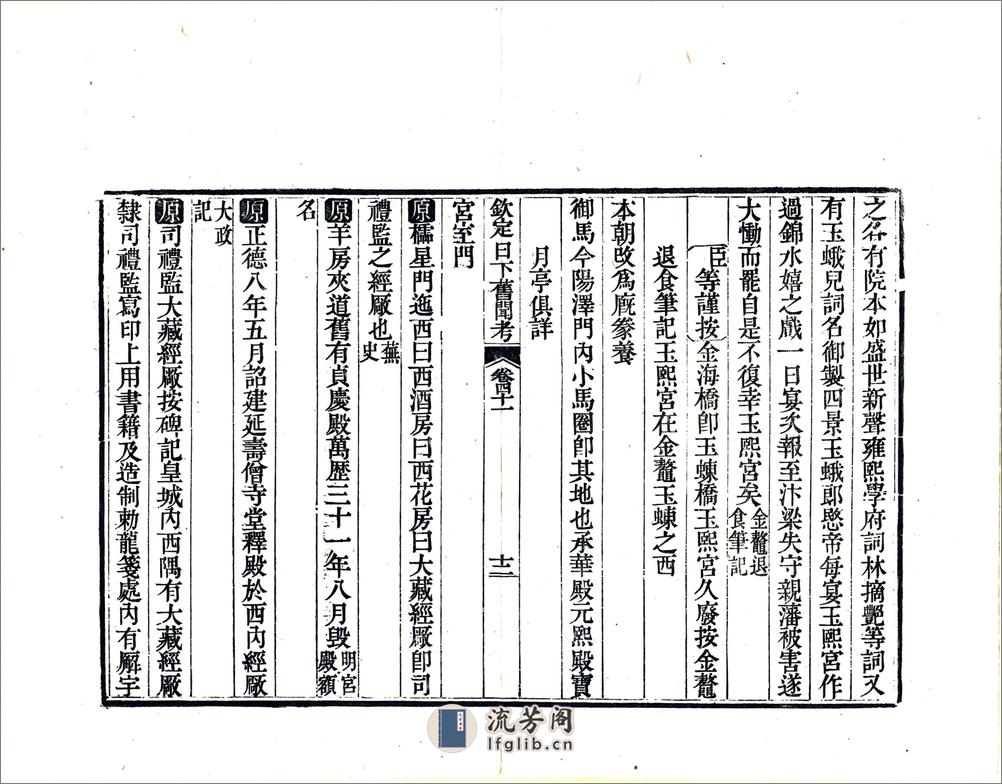 之名有院本如盛世新聲雍熙學府詞林摘艷等詞又
有玉蛾兒詞名御製四景玉蛾郎愍帝每宴玉熙宮作
過錦水嬉之戲一日宴次報至汴梁失守親藩被害遂
大慟而罷自是不復幸玉熙宮矣金鰲退食筆記
臣等謹按金海橋卽玉蝀橋玉熙宮久廢按金鰲
退食筆記玉熙宮在金鰲玉蝀之西
本朝改爲廐豢養
御馬今陽澤門內小馬圈卽其地也承華殿元熙殿寶
月亭俱詳
欽定日下舊聞考 卷四十一 十二
宮室門
原櫺星門迤西曰西酒房曰西花房曰大藏經厰卽司
禮監之經厰也蕪史
原羊房夾道舊有貞慶殿萬歷三十一年八月毀明宮殿額
名
原正德八年五月詔建延壽僧寺堂釋殿於西內經厰
大政記
原司禮監大藏經厰按碑記皇城內西隅有大藏經厰
隸司禮監寫印上用書籍及造制勅龍箋處內有廨宇
流芳阁
lfglib.cn